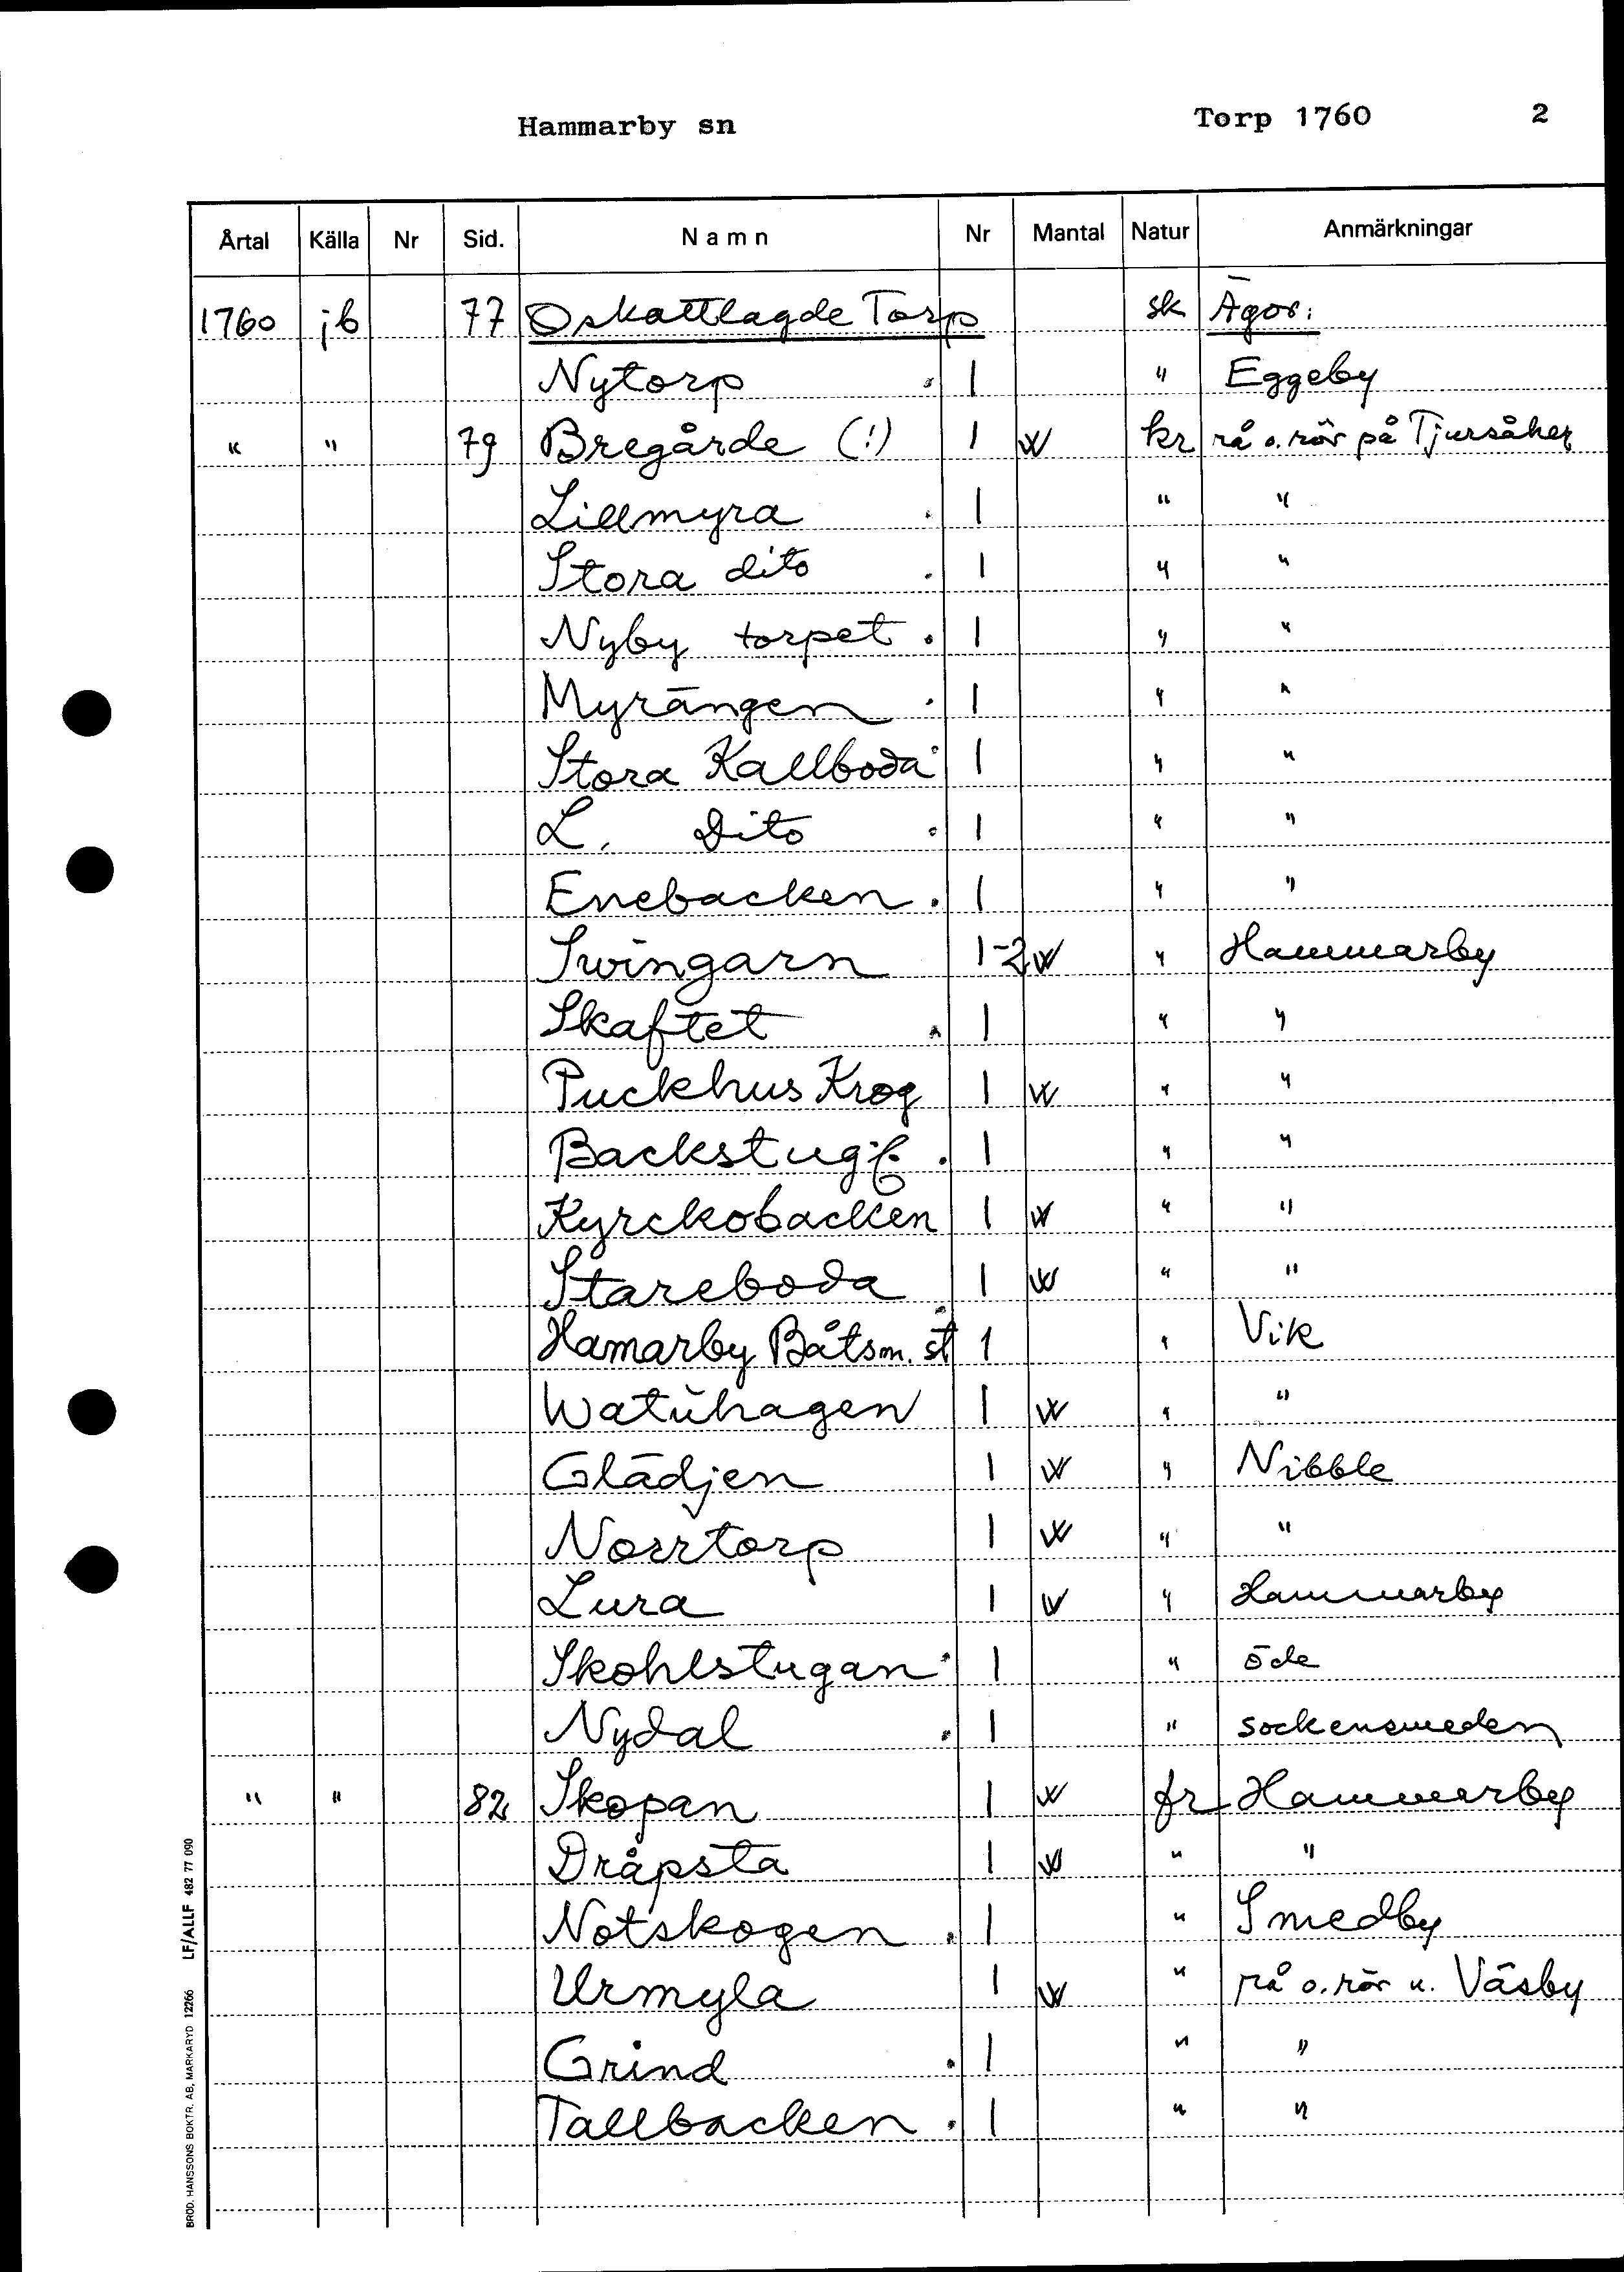 Hammarby sn Torp 1760 2
Årtal Källa Nr Sid. Namn Nr Mantal Natur Anmärkningar
1760 jb 77 Oskattlagde Torp sk Ägor:
Nytorp . 1 " Eggeby
" " 79 Bregårde (!) 1 W kr rå o. rör på Tjursåker
Lillmyra . 1 " "
Stora dito . 1 " "
Nyby torpet . 1 " "
Myrängen . 1 " "
Stora Kallboda . 1 " "
L. Dito . 1 " "
Enebacken . 1 " "
Swingarn 1-2 W " Hammarby
Skaftet . 1 " "
Puckhus Krog 1 W " "
Backstug . 1 " "
Kyrckobacken 1 W " "
Stareboda 1 W " "
Hamarby Båtsm. st 1 " Vik
Watuhagen 1 W " "
Glädjen 1 W " Nibble
Norrtorp 1 W " "
Lura 1 W " Hammarby
Skohlstugan . 1 " öde
Nydal . 1 " sockensmeden
" " 82 Skopan 1 W fr Hammarby
Dråpsta 1 W " "
Notskogen . 1 " Smedby
Urmyla 1 W " rå o. rör u. Väsby
Grind . 1 " "
Tallbacken . 1 " "
BROD. HANSSONS BOKTR. AB, MARKARYD 12266 LF/ALLF 482 77 090